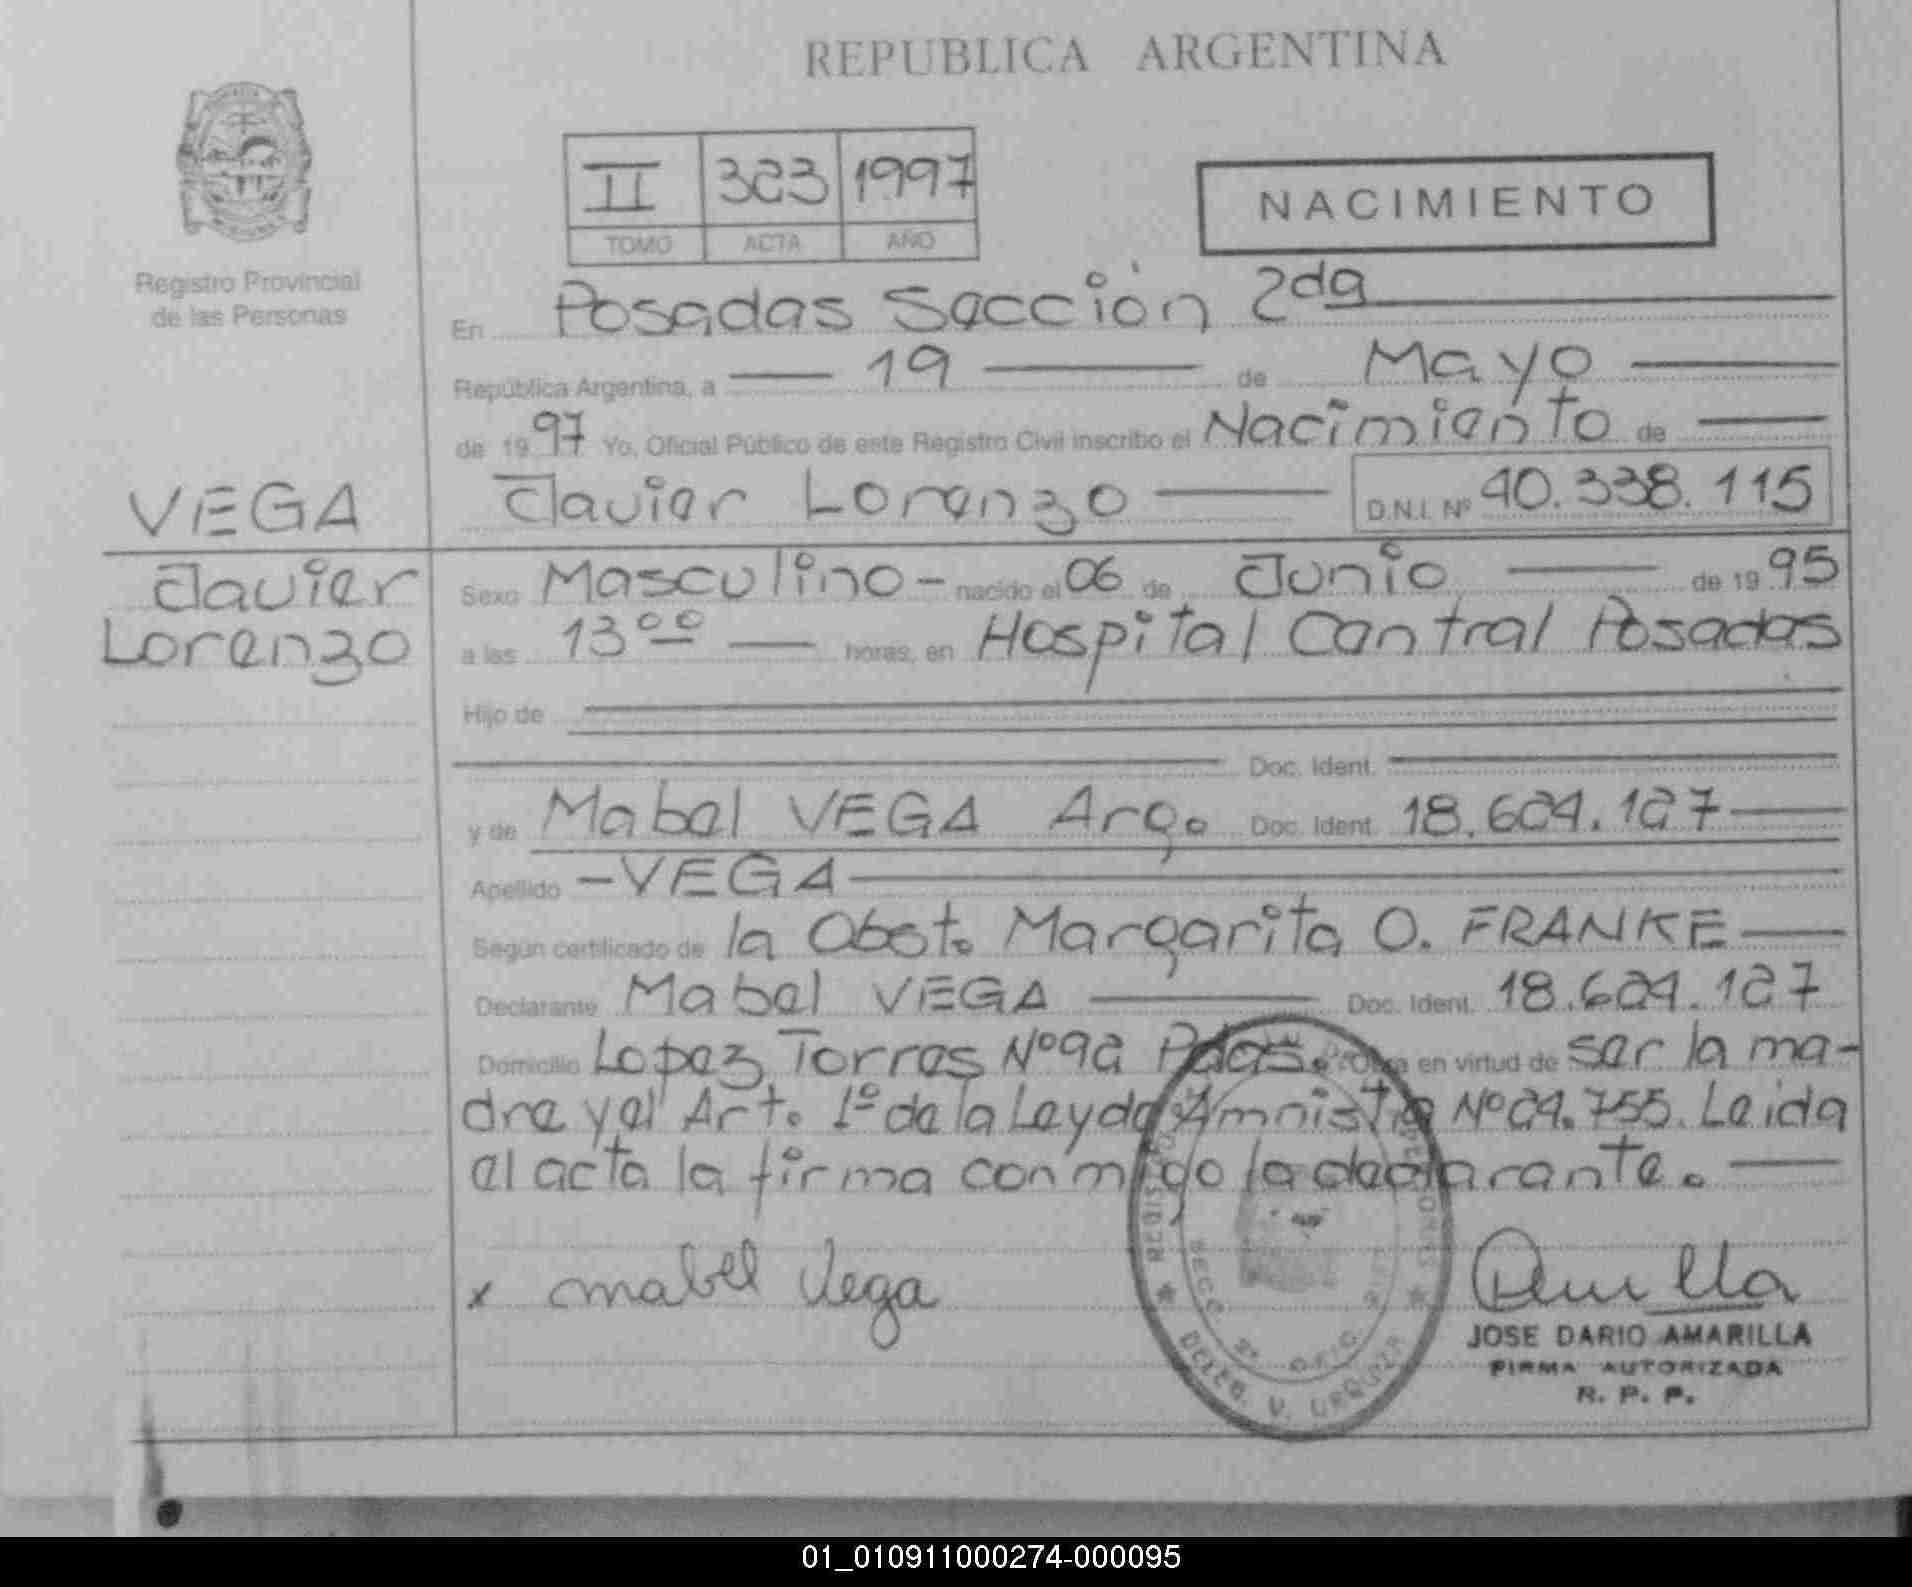 REPUBLICA ARGENTINA
II 323 1997
TOMO ACTA AÑO
NACIMIENTO
Registro Provincial
de las Personas
En Posadas Sección 2da
República Argentina, a 19 de Mayo
de 1997 Yo, Oficial Público de este Registro Civil inscribo el Nacimiento de
Javier Lorenzo D.N.I. Nº 40.338.115
VEGA
Javier
Lorenzo
Sexo Masculino - nacido el 06 de Junio de 1995
a las 13ºº horas, en Hospital Central Posadas
Hijo de
Doc. Ident.
y de Mabel VEGA Arg. Doc. Ident. 18.624.127
Apellido -VEGA
Según certificado de la Obst. Margarita O. FRANKE
Declarante Mabel VEGA Doc. Ident. 18.624.127
Domicilio Lopez Torres Nº42 Pdas. Obra en virtud de ser la ma-
dre y el Art. 1º de la Ley de Amnistia Nº24.755. Leida
el acta la firma conmigo la declarante.
x mabel Vega
JOSE DARIO AMARILLA
FIRMA AUTORIZADA
R. P. P.
REGISTRO
SECC. 2ª OFIC.
DELEG. V. URQUIZA
01_010911000274-000095